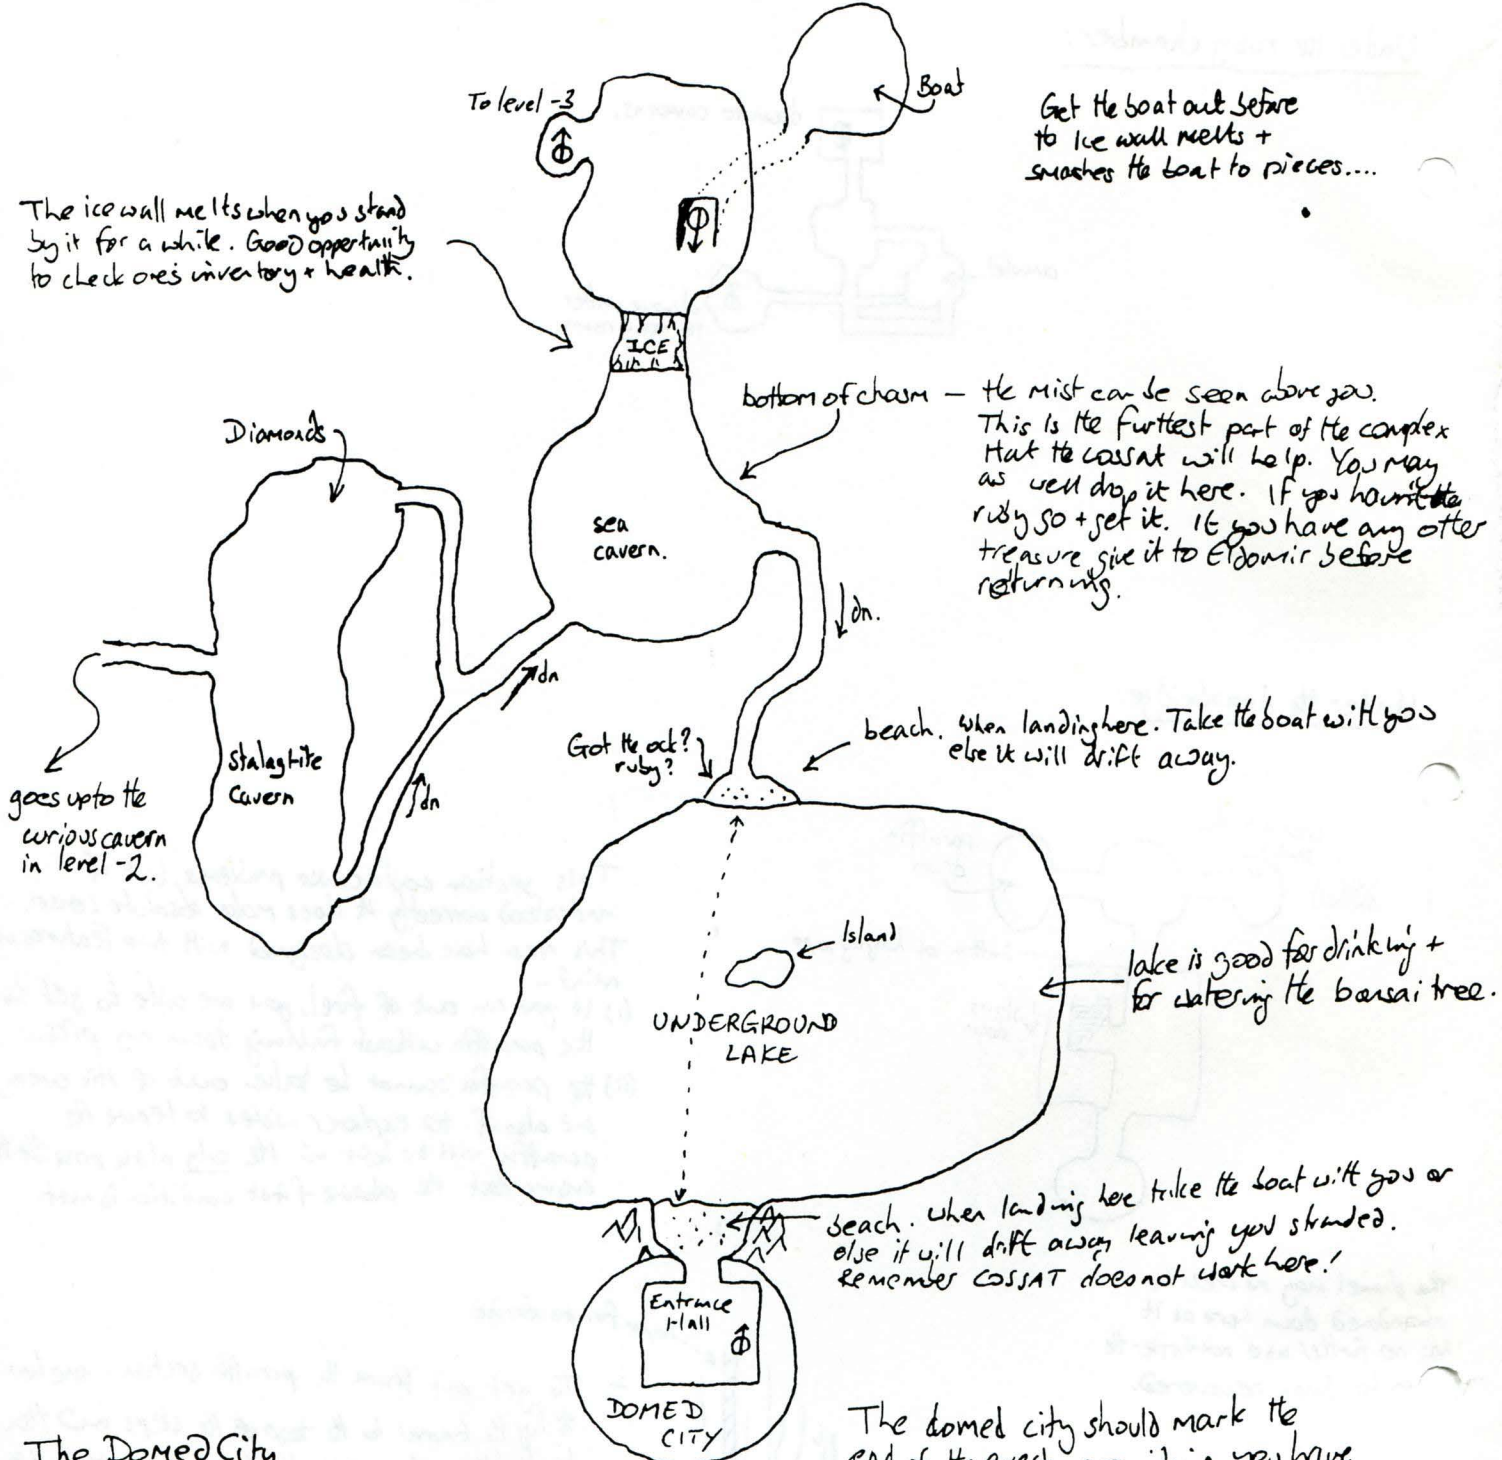 To level -3
Boat
Get the boat out before
to Ice wall melts +
smashes the boat to pieces....
The ice wall melts when you stand
by it for a while. Good opportunity
to check one's inventory + health.
ICE
bottom of chasm — the mist can be seen above you.
This is the furthest part of the complex
that the cossat will help. You may
as well drop it here. If you haven't the
ruby go + get it. If you have any other
treasure give it to Eldomir before
returning.
Diamonds
sea
cavern.
dn.
dn
Got the
ruby?
beach. when landing here. Take the boat with you
else it will drift away.
Stalagtite
Cavern
dn
goes up to the
curious cavern
in level -2.
Island
UNDERGROUND
LAKE
lake is good for drinking +
for watering the bonsai tree.
beach. when landing here take the boat with you or
else it will drift away leaving you stranded.
Remember COSSAT does not work here!
Entrance
Hall
DOMED
CITY
The Domed City
The domed city should mark the
end of the you have